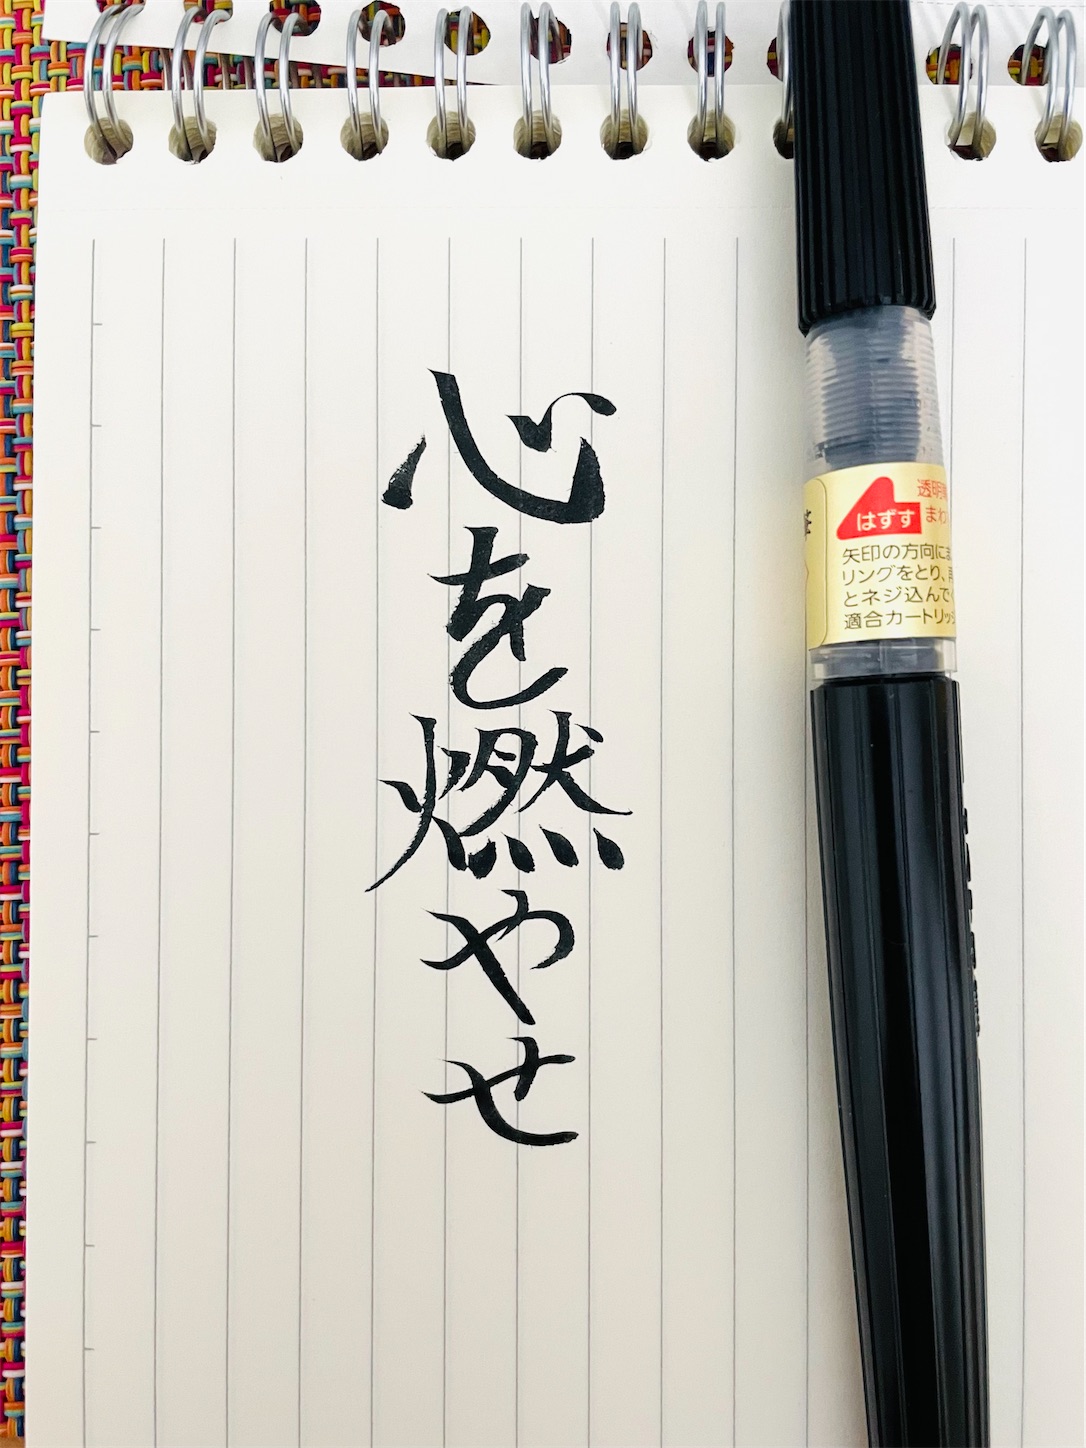 心を燃やせ
はずす
透明
まわ
矢印の方向に
リングをとり、
とネジ込んで
適合カートリッ